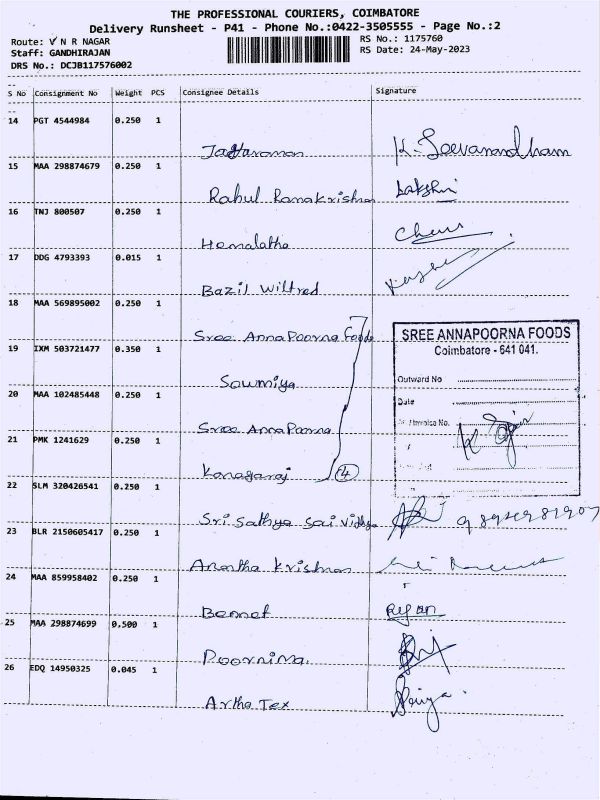 THE PROFESSIONAL COURIERS, COIMBATORE
Delivery Runsheet - P41 - Phone No.:0422-3505555 - Page No.:2
Route: V N R NAGAR
RS No.: 1175760
Staff: GANDHIRAJAN
RS Date: 24-May-2023
DRS No.: DCJB117576002
S No Consignment No Weight PCS Consignee Details Signature
14 PGT 4544984 0.250 1
K. Jeevanandham
15 MAA 298874679 0.250 1
Rahul Ramakrishna Lakshmi
16 TNJ 800507 0.250 1
Hemalatha
17 DDG 4793393 0.015 1
Bazil Wilfred
18 MAA 569895002 0.250 1
Sree AnnaPoorna Foods
19 IXM 503721477 0.350 1
Soumiya
20 MAA 102485448 0.250 1
Sree AnnaPoorna
21 PMK 1241629 0.250 1
Kanagaraj 4
SREE ANNAPOORNA FOODS
Coimbatore - 641 041.
Outward No
Date
Invoice No.
22 SLM 320426541 0.250 1
Sri Sathya Sai Vidhya
23 BLR 2150605417 0.250 1
Anantha Krishnan
24 MAA 859958402 0.250 1
Bennet Ryan
25 MAA 298874699 0.500 1
Poornima
26 EDQ 14950325 0.045 1
Artha Tex